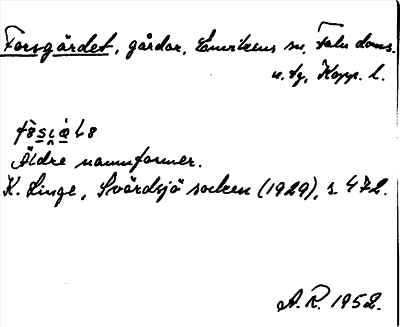 Forsgärdet, gårdar, Enviken sn, Falu doms.
u. tg, Kopp. l.
Äldre namnformer.
K. Linge, Svärdsjö socken (1929), s. 472.
A. R. 1952.